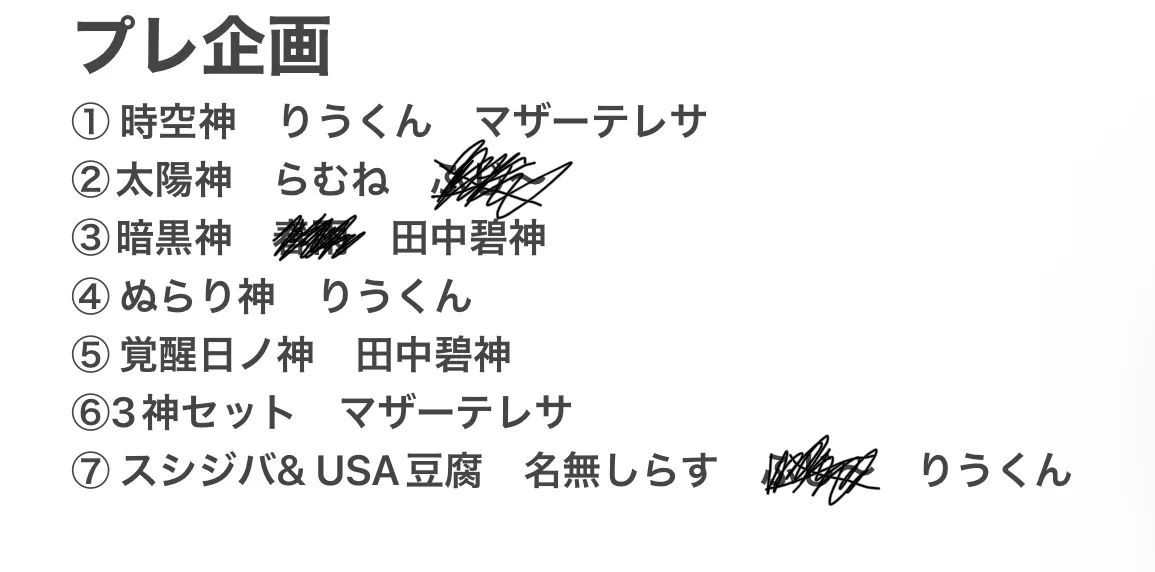 プレ企画
① 時空神　りうくん　マザーテレサ
②太陽神　らむね
③暗黒神　田中碧神
④ ぬらり神　りうくん
⑤ 覚醒日ノ神　田中碧神
⑥3神セット　マザーテレサ
⑦ スシジバ& USA豆腐　名無しらす　りうくん